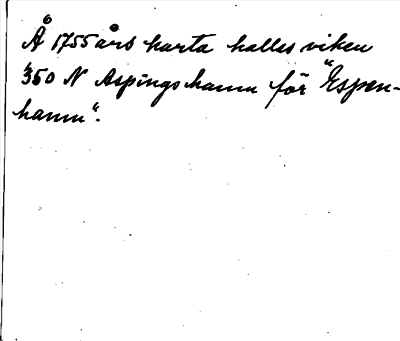 Å 1755 års karta kalles viken
350 N Aspingshamn för "Espen-
hamn".